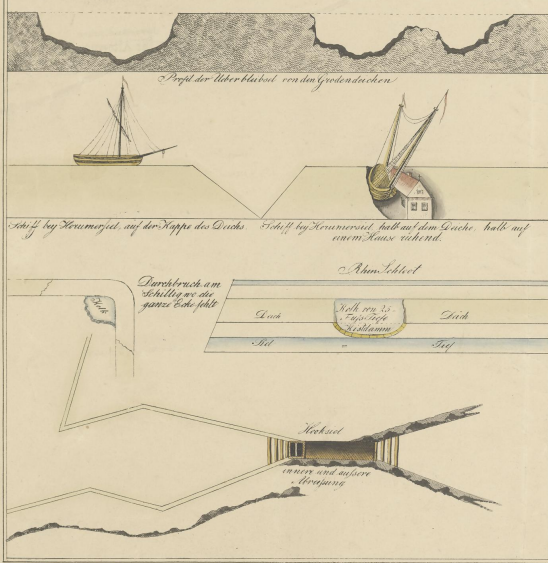 Profil der Ueberbleibsel von den Grodendeichen
Schiff bey Horumersiel, auf der Kappe des Deichs.
Schiff bey Horumersiel halb auf dem Deiche, halb auf
einem Hause ruhend.
Durchbruch am
Schillig wo die
ganze Ecke fehlt
Kolk
Rhin Schloot
Deich
Kolk von 25
Fuss Tiefe
Kistdamm
Deich
Siel
Tief
Hooksiel
innere und aussere
Abreissung